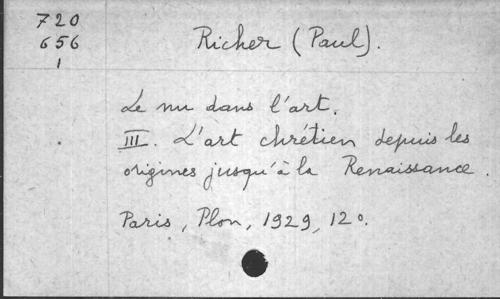 720
656
1
Richer (Paul).
Le nu dans l'art.
III. L'art chrétien depuis les
origines jusqu'à la Renaissance.
Paris, Plon, 1929, 12°.